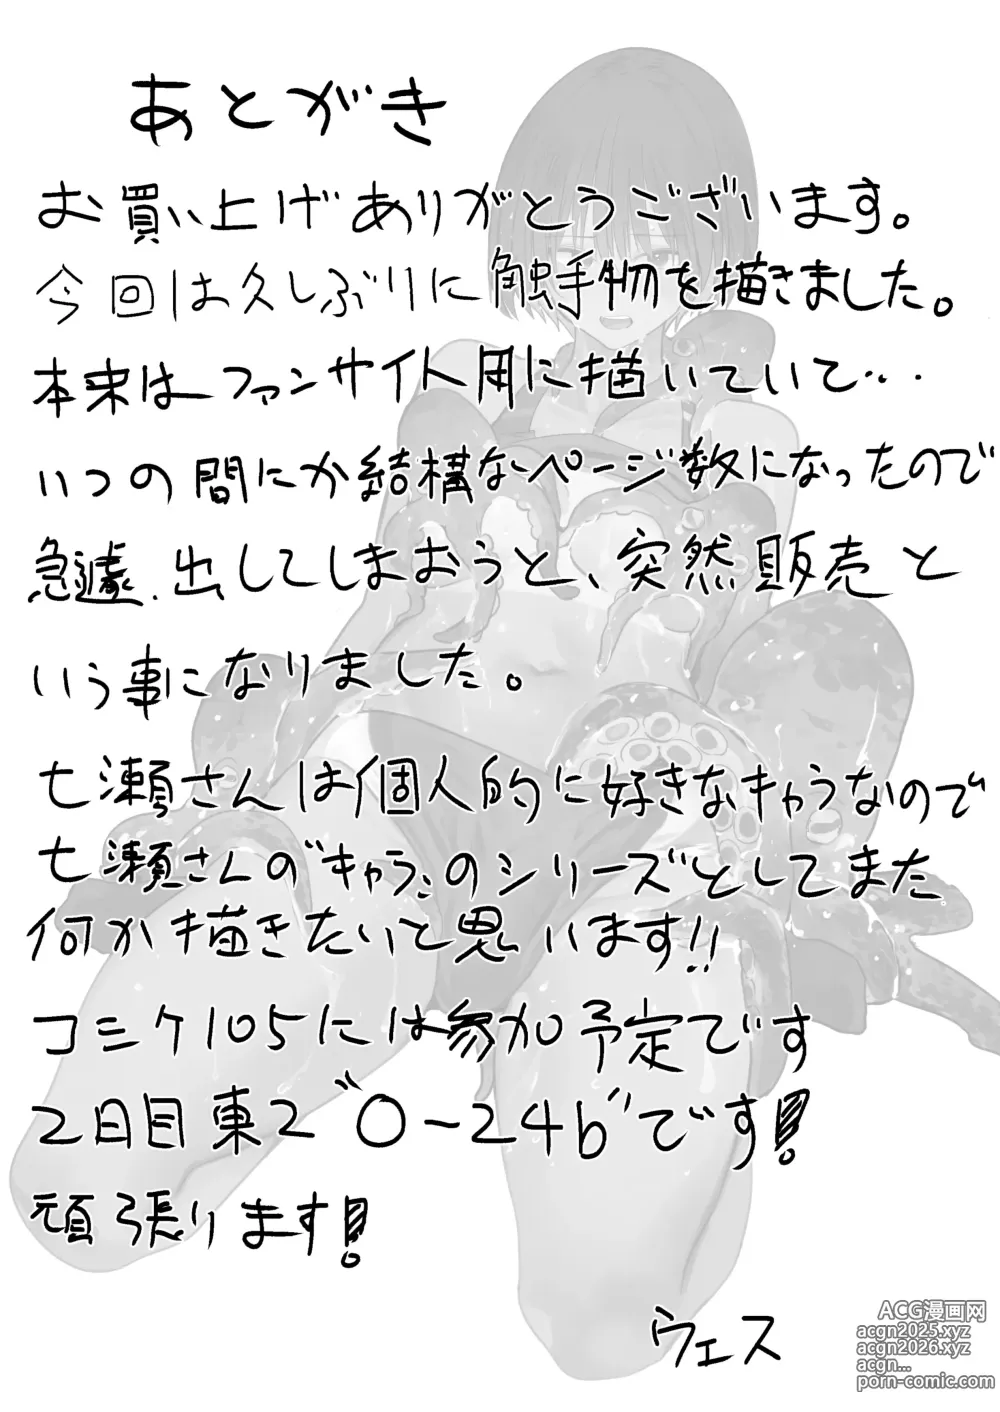 あとがき
お買い上げありがとうございます。
今回は久しぶりに触手物を描きました。
本来はファンサイト用に描いていて・・・
いつの間にか結構なページ数になったので
急遽、出してしまおうと、突然販売と
いう事になりました。
七瀬さんは個人的に好きなキャラなので
七瀬さんの"キャラ"のシリーズとしてまた
何か描きたいと思います!!
コミケ105には参加予定です
2日目東2"O-24b"です!
頑張ります!
ウェス
ACG漫画网
acgn2025.xyz
acgn2026.xyz
acgn...
porn-comic.com